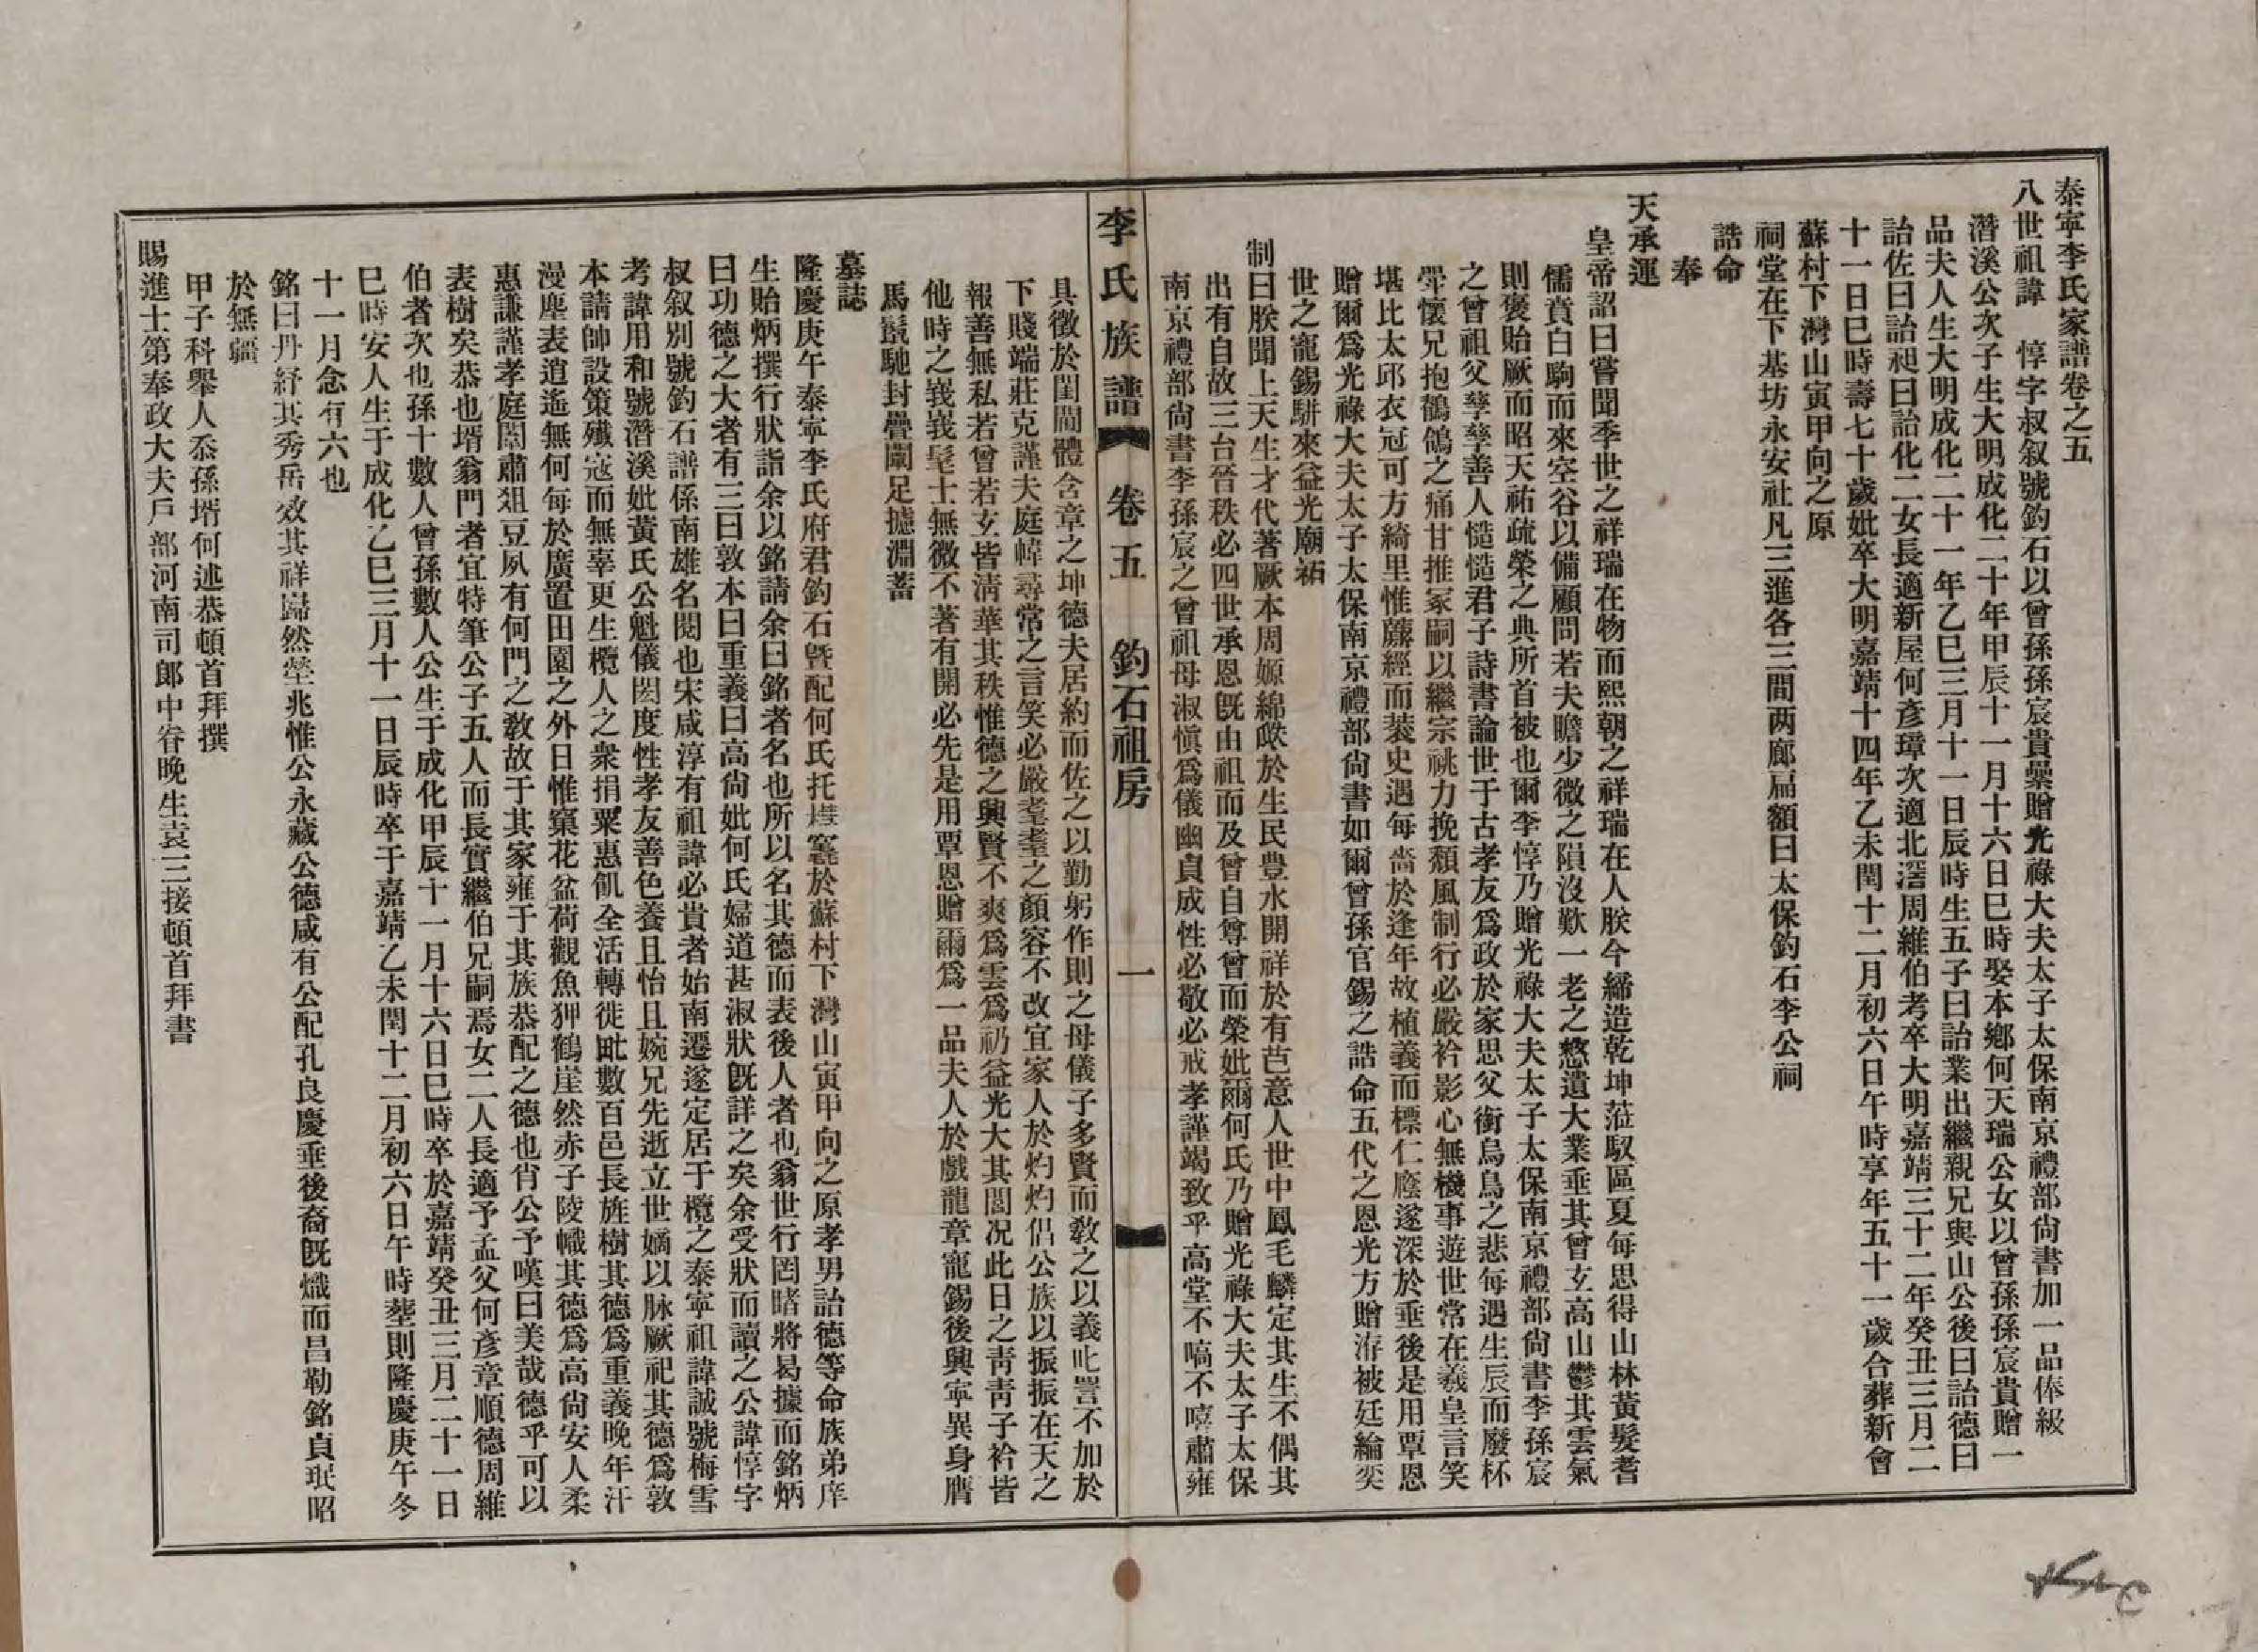 泰寧李氏家譜卷之五
八世祖諱　惇字叔叙號釣石以曾孫孫宸貴纍贈光祿大夫太子太保南京禮部尙書加一品俸級
潛溪公次子生大明成化二十年甲辰十一月十六日巳時娶本鄉何天瑞公女以曾孫孫宸貴贈一
品夫人生大明成化二十一年乙巳三月十一日辰時生五子曰詒業出繼親兄與山公後曰詒德曰
詒佐曰詒昶曰詒化二女長適新屋何彥璋次適北滘周維伯考卒大明嘉靖三十二年癸丑三月二
十一日巳時壽七十歲妣卒大明嘉靖十四年乙未閏十二月初六日午時享年五十一歲合葬新會
蘇村下灣山寅甲向之原
祠堂在下基坊永安社凡三進各三間两廊扁額曰太保釣石李公祠
誥命
奉
天承運
皇帝詔曰嘗聞季世之祥瑞在物而熙朝之祥瑞在人朕今締造乾坤蒞馭區夏每思得山林黃髮耆
儒賁白駒而來空谷以備顧問若夫瞻少微之隕沒歎一老之憖遺大業垂其曾玄高山鬱其雲氣
則褒貽厥而昭天祐疏榮之典所首被也爾李惇乃贈光祿大夫太子太保南京禮部尙書李孫宸
之曾祖父孳孳善人慥慥君子詩書論世于古孝友爲政於家思父銜烏鳥之悲每遇生辰而廢杯
斝懷兄抱鶺鴒之痛甘推冢嗣以繼宗祧力挽頹風制行必嚴衿影心無機事遊世常在羲皇言笑
堪比太邱衣冠可方綺里惟藨經而蓘史遇每嗇於逢年故植義而標仁廕遂深於垂後是用覃恩
贈爾爲光祿大夫太子太保南京禮部尙書如爾曾孫官錫之誥命五代之恩光方贈洊被廷綸奕
世之寵錫駢來益光廟祏
制曰朕聞上天生才代著厥本周嫄綿瓞於生民豊水開祥於有芑意人世中鳳毛麟定其生不偶其
出有自故三台晉秩必四世承恩旣由祖而及曾自尊曾而榮妣爾何氏乃贈光祿大夫太子太保
南京禮部尙書李孫宸之曾祖母淑愼爲儀幽貞成性必敬必戒孝謹竭致乎高堂不嗃不嘻肅雍
李氏族譜　卷五　釣石祖房　一
具徵於閨閫體含章之坤德夫居約而佐之以勤躬作則之母儀子多賢而敎之以義叱詈不加於
下賤端莊克謹夫庭幃尋常之言笑必嚴耄耋之顏容不改宜家人於灼灼侶公族以振振在天之
報善無私若曾若玄皆淸華其秩惟德之興賢不爽爲雲爲礽益光大其閭况此日之靑靑子衿皆
他時之峩峩髦士無微不著有開必先是用覃恩贈爾爲一品夫人於戲龍章寵錫後興寧異身膺
馬鬛馳封疊闡足攄淵蓄
墓誌
隆慶庚午泰寧李氏府君釣石曁配何氏托塟窀於蘇村下灣山寅甲向之原孝男詒德等命族弟庠
生貽炳撰行狀詣余以銘請余曰銘者名也所以名其德而表後人者也翁世行罔睹將曷據而銘炳
曰功德之大者有三曰敦本曰重義曰高尙妣何氏婦道甚淑狀旣詳之矣余受狀而讀之公諱惇字
叔叙別號釣石譜係南雄名閥也宋咸淳有祖諱必貴者始南遷遂定居于欖之泰寧祖諱誠號梅雪
考諱用和號潛溪妣黃氏公魁儀閎度性孝友善色養且怡且婉兄先逝立世嫡以脉厥祀其德爲敦
本請帥設策殲寇而無辜更生欖人之衆捐粟惠飢全活轉徙毗數百邑長旌樹其德爲重義晚年汗
漫塵表逍遙無何每於廣置田園之外日惟窠花盆荷觀魚狎鶴崖然赤子陵幟其德爲高尙安人柔
惠謙謹孝庭閫肅俎豆夙有何門之敎故于其家雍于其族恭配之德也肖公予嘆曰美哉德乎可以
表樹矣恭也壻翁門者宜特筆公子五人而長實繼伯兄嗣焉女二人長適予孟父何彥章順德周維
伯者次也孫十數人曾孫數人公生于成化甲辰十一月十六日巳時卒於嘉靖癸丑三月二十一日
巳時安人生于成化乙巳三月十一日辰時卒于嘉靖乙未閏十二月初六日午時塟則隆慶庚午冬
十一月念有六也
銘曰丹紓其秀岳效其祥巋然塋兆惟公永藏公德咸有公配孔良慶垂後裔旣熾而昌勒銘貞珉昭
於無疆
甲子科舉人忝孫壻何述恭頓首拜撰
賜進士第奉政大夫戶部河南司郎中眷晚生袁三接頓首拜書